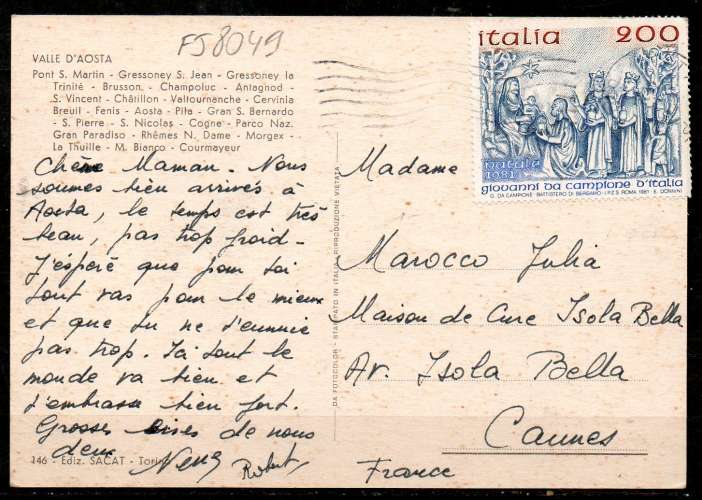 FS8049
VALLE D'AOSTA
Pont S. Martin - Gressoney S. Jean - Gressoney la
Trinité - Brusson - Champoluc - Antagnod -
S. Vincent - Châtillon - Valtournanche - Cervinia
Breuil - Fenis - Aosta - Pila - Gran S. Bernardo
- S. Pierre - S. Nicolas - Cogne - Parco Naz.
Gran Paradiso - Rhêmes N. Dame - Morgex -
La Thuille - M. Bianco - Courmayeur
Chère Maman. Nous
sommes bien arrivés à
Aosta, le temps est très
beau, pas trop froid -
J'espère que pour toi
tout vas pour le mieux
et que tu ne t'ennuie
pas trop. Ici tout le
monde va bien et
t'embrasse bien fort.
Grosses bises de nous
deux
Robert
146 - Ediz. SACAT - Torino
DA FOTOCOLOR - STAMPATO IN ITALIA - RIPRODUZIONE VIETATA
italia 200
natale
1981
giovanni da campione d'italia
G. DA CAMPIONE BATTISTERO DI BERGAMO - I.P.Z.S. ROMA 1981 - E. DONNINI
Madame
Marocco Julia
Maison de Cure Isola Bella
Av. Isola Bella
Cannes
France